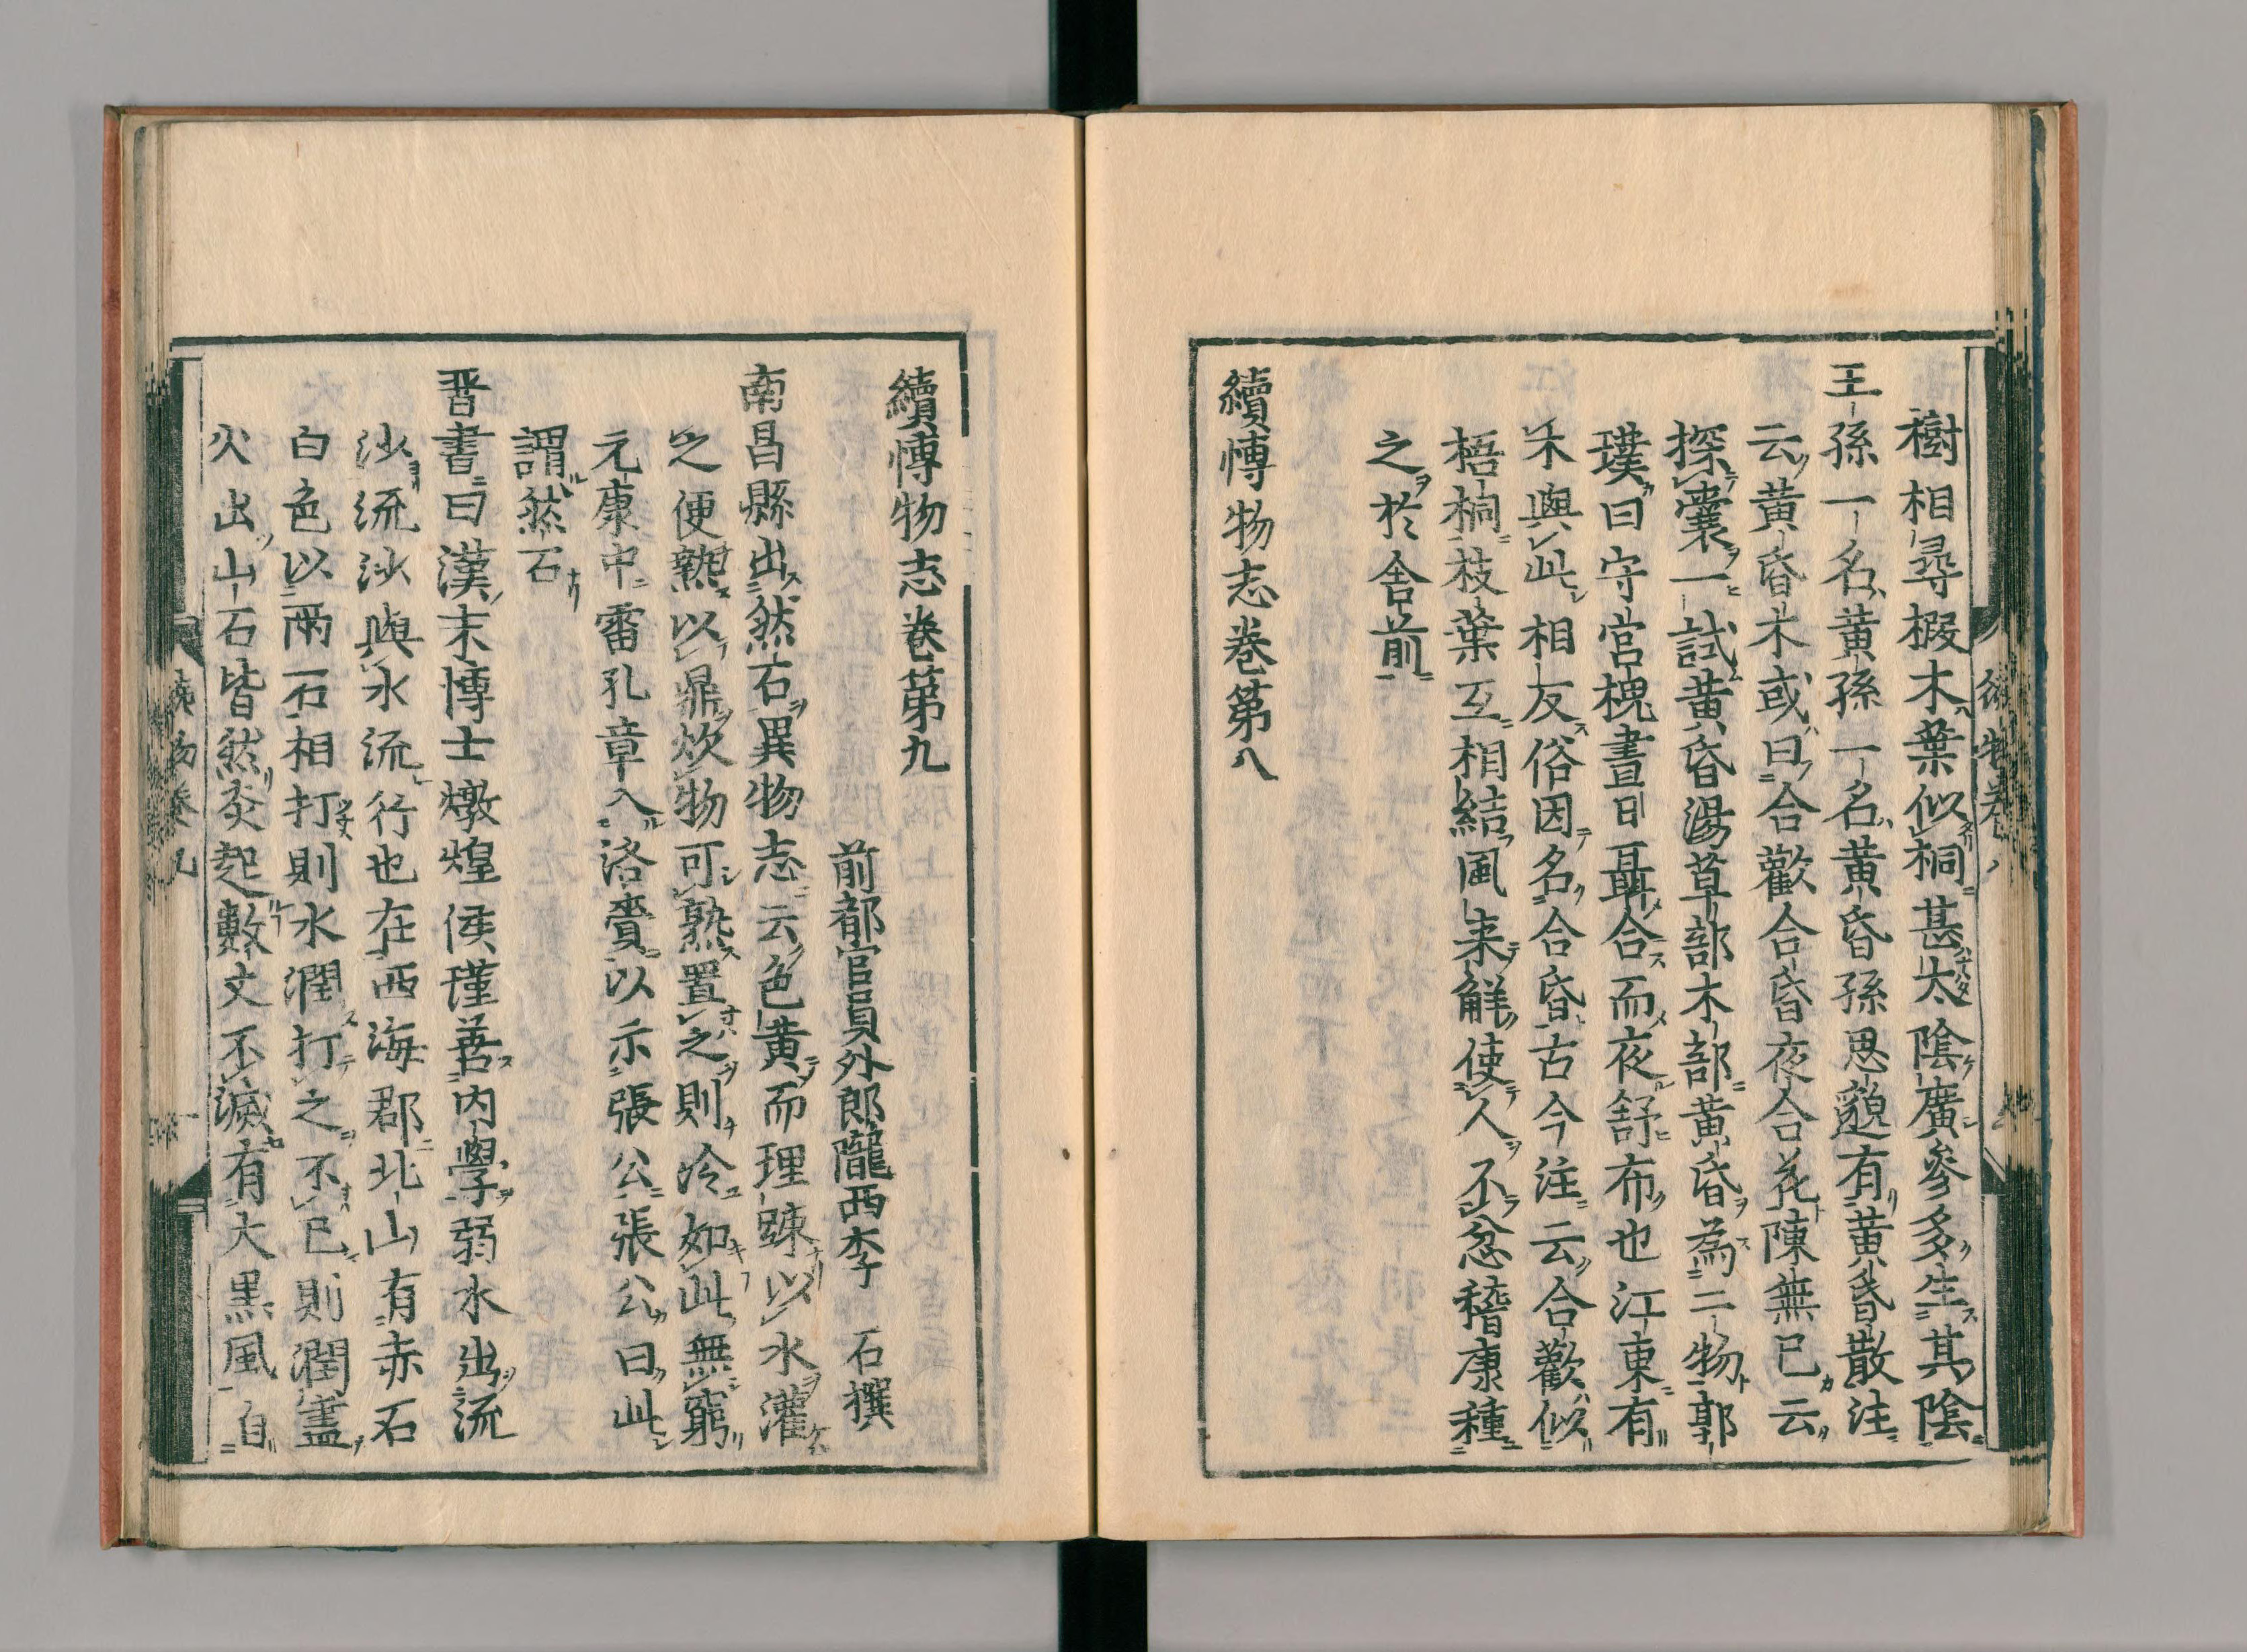 樹相尋椵木葉似桐甚太陰廣參多生其陰
王孫一名黃孫一名黃昏孫思邈有黃昏散注
云黃昏木或曰合歡合昏夜合花陳無已云
探囊一試黃昏湯草部木部黃昏為二物郭
璞曰守宫槐晝日聶合而夜舒布也江東有
木與此相反俗因名合昏古今注云合歡似
梧桐枝葉互相結風来觧使人不忿嵇康種
之於舍前
續愽物志卷第八
續愽物志卷第九
前都官員外郎隴西李 石撰
南昌縣出然石異物志云色黃而理踈以水灌
之便熱以鼎炊物可熟置之則冷如此無窮
元康中雷孔章入洛賫以示張公張公曰此
謂然石
晋書曰漢末愽士燉煌侯瑾善内學弱水出流
沙流沙與水流行也在西海郡北山有赤石
白色以兩石相打則水潤打之不已則潤盡
火出山石皆然炎起數丈不滅有大黒風自